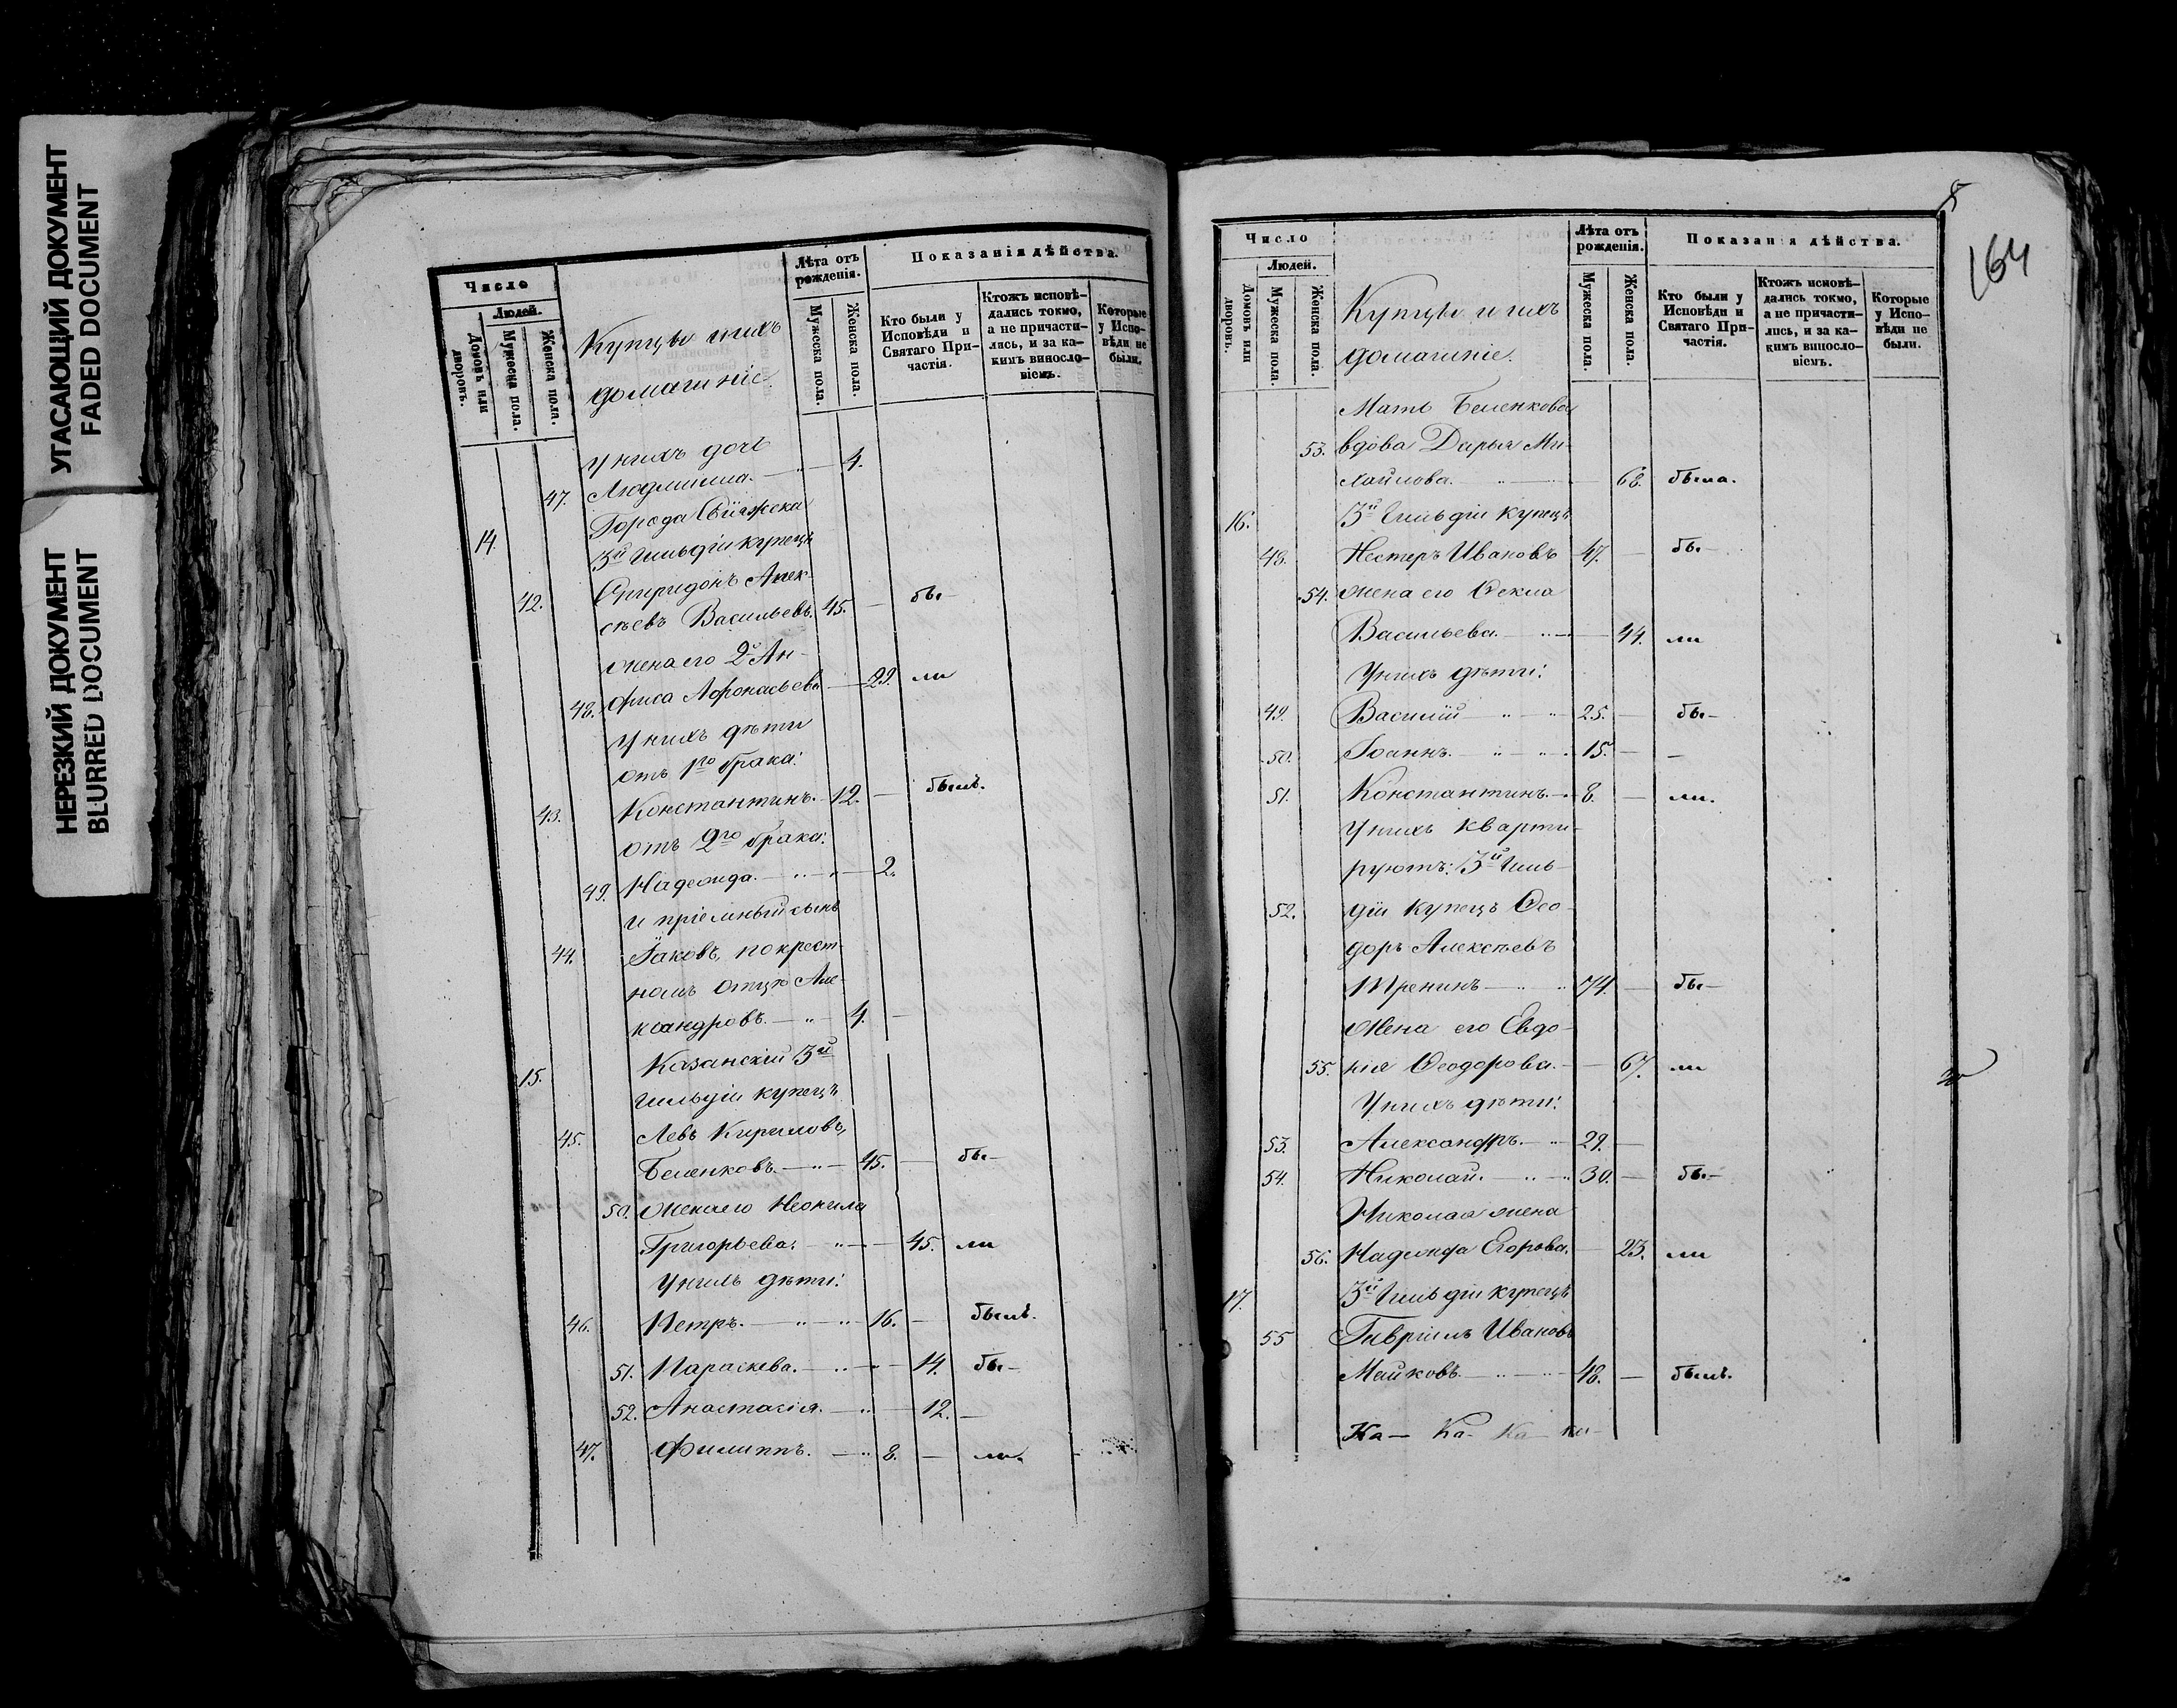 УГАСАЮЩИЙ ДОКУМЕНТ
FADED DOCUMENT
НЕРЕЗКИЙ ДОКУМЕНТ
BLURRED DOCUMENT
Число
Людей.
Домовъ или дворовъ.
Мужеска пола.
Женска пола.
Купцы и ихъ
домашніе.
Лѣта отъ рожденія.
Мужеска пола.
Женска пола.
Показанія дѣйства.
Кто были у Исповѣди и Святаго Причастія.
Ктожъ исповѣдались токмо, а не причастились, и за какимъ винословіемъ.
Которые у Исповѣди не были.
У нихъ дочь
47. Людмилла. 4.
14. Города Свіяжска
3й гильдіи купецъ
42. Спиридонъ Алек-
сѣевъ Васильевъ. 45. — бы-
жена его 2я Ан-
48. фиса Афонасьева — 29. ли
У нихъ дѣти
отъ 1го брака:
43. Константинъ. 12. — былъ.
отъ 2го брака:
49. Надежда. — 2.
и пріемный сынъ
44. Іаковъ, по крест-
номъ отцѣ Але-
ксандровъ. — 4. —
15. Казанскій 3й
гильдіи купецъ
45. Левъ Кириловъ,
Беленковъ. — 45. — бы-
50. жена его Неонила
Григорьева. — 45. ли
У нихъ дѣти:
46. Петръ. — 16. — былъ.
51. Параскева. — 14. бы-
52. Анастасія. — 12. —
47. Филиппъ. — 8. — ли.
8
164
Число
Людей.
Домовъ или дворовъ.
Мужеска пола.
Женска пола.
Купцы и ихъ
домашніе.
Лѣта отъ рожденія.
Мужеска пола.
Женска пола.
Показанія дѣйства.
Кто были у Исповѣди и Святаго Причастія.
Ктожъ исповѣдались токмо, а не причастились, и за какимъ винословіемъ.
Которые у Исповѣди не были.
Мать Беленкова
53. вдова Дарья Ми-
хайлова. — 68. была.
16. 3й гильдіи купецъ
48. Нестеръ Ивановъ 47. — бы-
54. жена его Ѳекла
Васильева. — 44. ли
У нихъ дѣти:
49. Василій 25. — бы-
50. Іоаннъ. 15. — —
51. Константинъ. 8. — ли.
У нихъ кварти-
руютъ: 3й гиль-
52. діи купецъ Ѳео-
доръ Алексѣевъ
Пренинъ 74. — бы-
Жена его Евдо-
55. кія Ѳеодорова. — 67. ли
У нихъ дѣти:
53. Александръ. 29. —
54. Николай. 30. — бы-
Николая жена
56. Надежда Егорова. — 23. ли
17. 3й гильдіи купецъ
55 Гавріилъ Ивановъ
Майковъ. 48. — былъ.
Ка- Ка- Ка- ка-